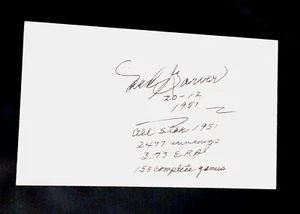 Ned Garver
20-12
1951
All Star 1951
2477 innings
3.73 ERA
153 complete games